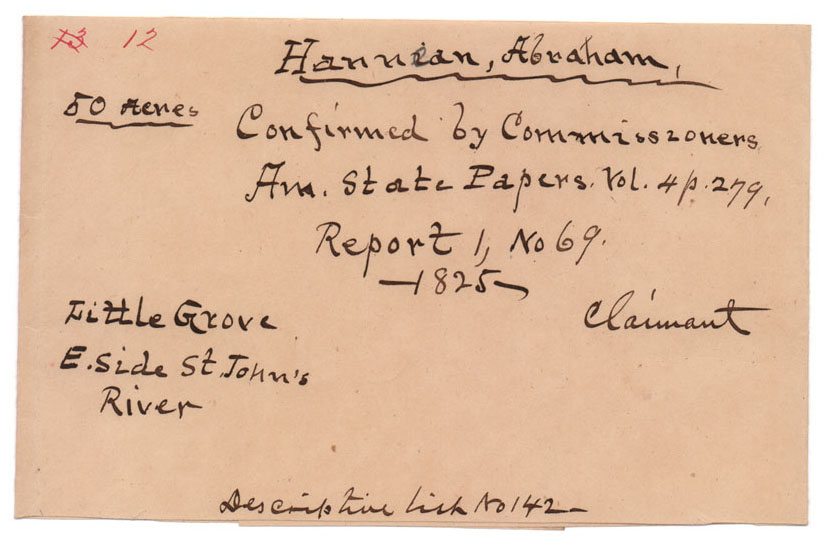 13 12
Hannean, Abraham,
50 Acres
Confirmed by Commissioners
Am. State Papers. Vol. 4 p. 279,
Report 1, No 69.
—1825—
Little Grove
Claimant
E. Side St. John's
River
Descriptive List No 142—